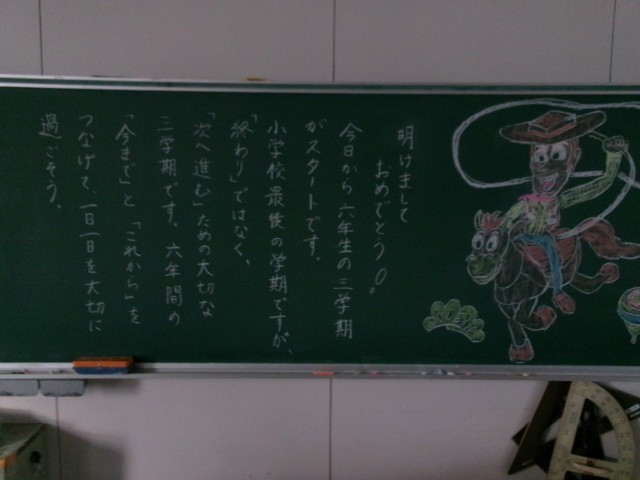 明けまして
おめでとう○。
今日から六年生の三学期
がスタートです。
小学校最後の学期ですが、
「終わり」ではなく、
「次へ進む」ための大切な
三学期です。六年間の
「今まで」と「これから」を
つなげて、一日一日を大切に
過ごそう。